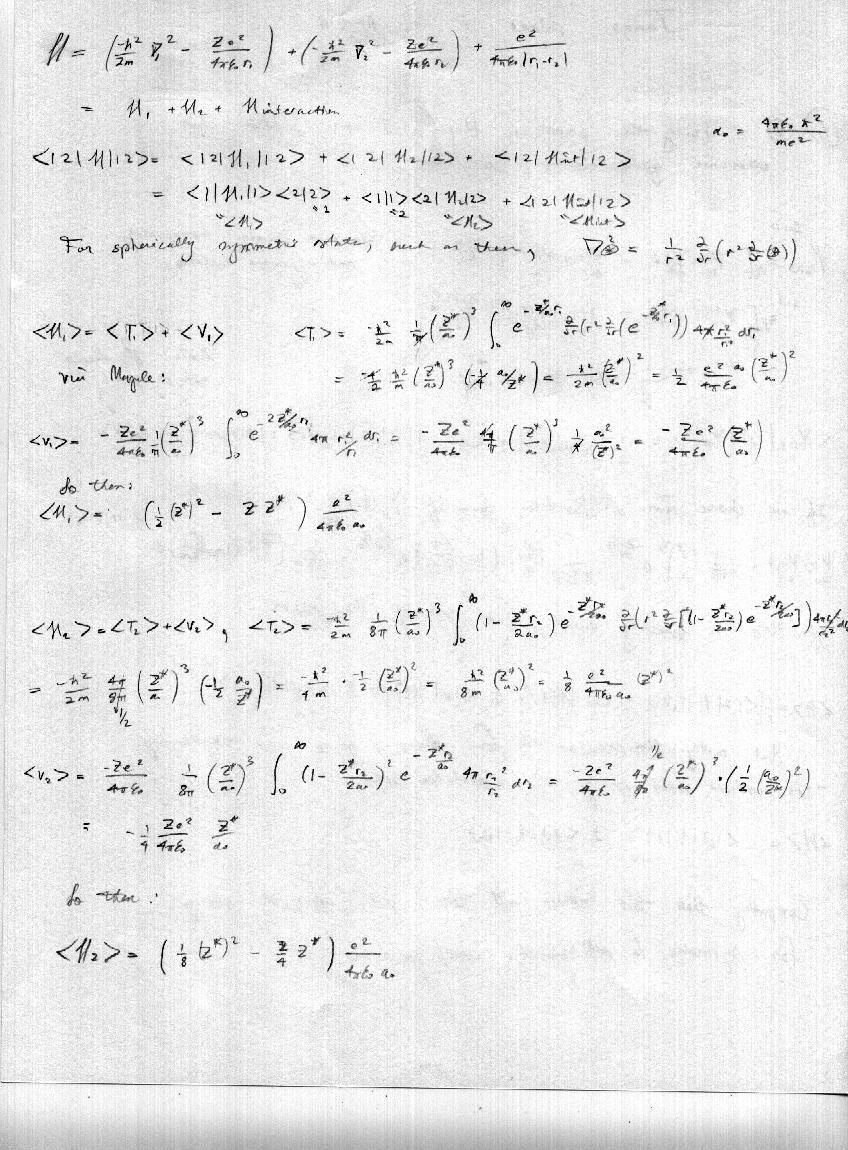 H = (-ħ²/2m ∇₁² - Ze²/4πε₀r₁) + (-ħ²/2m ∇₂² - Ze²/4πε₀r₂) + e²/4πε₀|r₁-r₂|
= H₁ + H₂ + H interaction
a₀ = 4πε₀ħ²/me²
<12|H|12> = <12|H₁|12> + <12|H₂|12> + <12|Hint|12>
= <1|H₁|1><2|2> + <1|1><2|H₂|2> + <12|Hint|12>
"<H₁> "<H₂> "<Hint>
For spherically symmetric states, such as these, ∇² = 1/r² ∂/∂r(r² ∂/∂r( ))
<H₁> = <T₁> + <V₁> <T₁> = -ħ²/2m 1/π (Z*/a₀)³ ∫₀^∞ e^(-Z*/a₀ r₁) ∂/∂r(r² ∂/∂r(e^(-Z*/a₀ r₁))) 4π r₁²/r₁² dr₁
via Maple: = -4/2 ħ²/m (Z*/a₀)³ (-1/4 a₀/Z*) = ħ²/2m (Z*/a₀)² = 1/2 e² a₀/4πε₀ (Z*/a₀)²
<V₁> = -Ze²/4πε₀ 1/π (Z*/a₀)³ ∫₀^∞ e^(-2Z*/a₀ r₁) 4π r₁²/r₁ dr₁ = -Ze²/4πε₀ 4π/π (Z*/a₀)³ 1/4 a₀²/(Z*)² = -Ze²/4πε₀ (Z*/a₀)
So then:
<H₁> = (1/2 (Z*)² - Z Z*) e²/4πε₀a₀
<H₂> = <T₂> + <V₂>, <T₂> = -ħ²/2m 1/8π (Z*/a₀)³ ∫₀^∞ (1 - Z*r₂/2a₀) e^(-Z*r₂/2a₀) ∂/∂r(r² ∂/∂r[(1 - Z*r₂/2a₀) e^(-Z*r₂/2a₀)]) 4π r₂²/r₂² dr₂
= -ħ²/2m 4π/8π (Z*/a₀)³ (-1/2 a₀/Z*) = -ħ²/4m · -1/2 (Z*/a₀)² = ħ²/8m (Z*/a₀)² = 1/8 e²/4πε₀a₀ (Z*)²
1/2
<V₂> = -Ze²/4πε₀ 1/8π (Z*/a₀)³ ∫₀^∞ (1 - Z*r₂/2a₀)² e^(-Z*r₂/a₀) 4π r₂²/r₂ dr₂ = -Ze²/4πε₀ 4π/8π (Z*/a₀)³ · (1/2 (a₀/Z*)²)
= -1/4 Ze²/4πε₀ Z*/a₀
So then:
<H₂> = (1/8 (Z*)² - Z/4 Z*) e²/4πε₀a₀